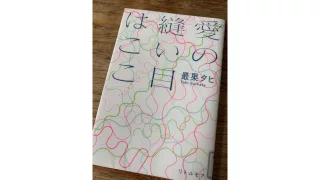 愛の
縫い目
はここ
最果タヒ
リトルモア